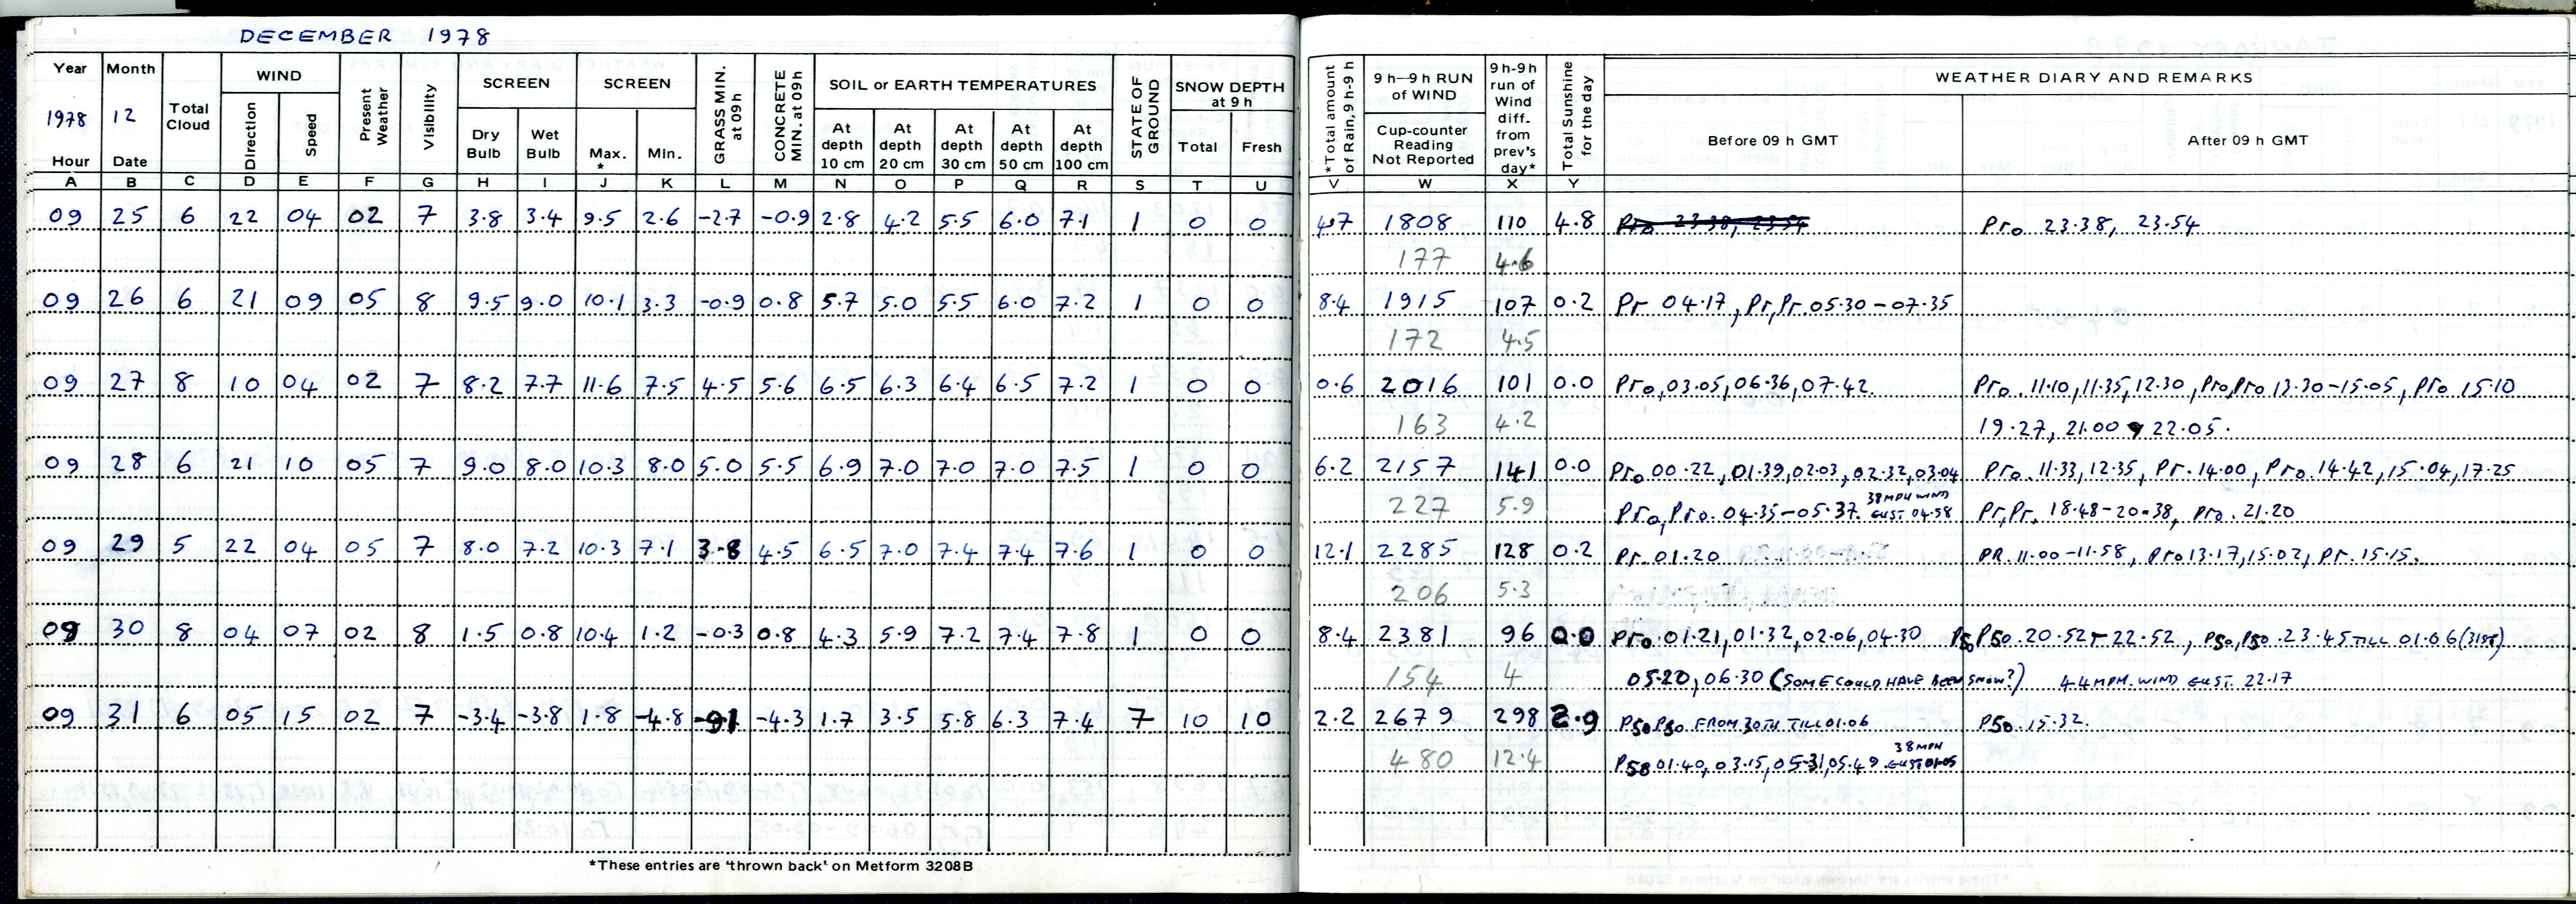 DECEMBER 1978
Year Month Total Cloud WIND Present Weather Visibility SCREEN SCREEN GRASS MIN. at 09h CONCRETE MIN. at 09h SOIL or EARTH TEMPERATURES STATE OF GROUND SNOW DEPTH at 9 h *Total amount of Rain, 9 h-9 h 9 h-9 h RUN of WIND 9 h-9h run of Wind diff. from prev's day* Total Sunshine for the day WEATHER DIARY AND REMARKS
1978 12 Direction Speed Dry Bulb Wet Bulb Max. * Min. At depth 10 cm At depth 20 cm At depth 30 cm At depth 50 cm At depth 100 cm Total Fresh Cup-counter Reading Not Reported Before 09 h GMT After 09 h GMT
Hour Date
A B C D E F G H I J K L M N O P Q R S T U V W X Y
09 25 6 22 04 02 7 3.8 3.4 9.5 2.6 -2.7 -0.9 2.8 4.2 5.5 6.0 7.1 1 0 0 4.7 1808 110 4.8 Pro 23.38, 23.54 Pro 23.38, 23.54
177 4.6
09 26 6 21 09 05 8 9.5 9.0 10.1 3.3 -0.9 0.8 5.7 5.0 5.5 6.0 7.2 1 0 0 8.4 1915 107 0.2 Pr 04.17, Pr,Pr. 05.30-07.35
172 4.5
09 27 8 10 04 02 7 8.2 7.7 11.6 7.5 4.5 5.6 6.5 6.3 6.4 6.5 7.2 1 0 0 0.6 2016 101 0.0 Pro, 03.05, 06.36, 07.42. Pro. 11.10, 11.35, 12.30, Pro,Pro 13.30-15.05, Pro 15.10
163 4.2 19.27, 21.00 22.05.
09 28 6 21 10 05 7 9.0 8.0 10.3 8.0 5.0 5.5 6.9 7.0 7.0 7.0 7.5 1 0 0 6.2 2157 141 0.0 Pro 00.22, 01.39, 02.03, 02.32, 03.04 Pro. 11.33, 12.35, Pr. 14.00, Pro. 14.42, 15.04, 17.25
227 5.9 Pro, Pro. 04.35-05.37. 38 MPH WIND GUST. 04.58 Pr,Pr. 18.48-20.38, Pro. 21.20
09 29 5 22 04 05 7 8.0 7.2 10.3 7.1 3.8 4.5 6.5 7.0 7.4 7.4 7.6 1 0 0 12.1 2285 128 0.2 Pr. 01.20 PR. 11.00-11.58, Pro 13.17, 15.02, Pr. 15.15.
206 5.3
09 30 8 04 07 02 8 1.5 0.8 10.4 1.2 -0.3 0.8 4.3 5.9 7.2 7.4 7.8 1 0 0 8.4 2381 96 0.0 Pro. 01.21, 01.32, 02.06, 04.30 PSo PSo. 20.52-22.52, PSo, PSo. 23.45 TILL 01.06 (31st)
154 4 05.20, 06.30 (SOME COULD HAVE BEEN SNOW?) 44 MPH. WIND GUST. 22.17
09 31 6 05 15 02 7 -3.4 -3.8 1.8 -4.8 -9.1 -4.3 1.7 3.5 5.8 6.3 7.4 7 10 10 2.2 2679 298 2.9 PSo PSo FROM 30TH TILL 01.06 PSo. 15.32.
480 12.4 PSo 01.40, 03.15, 05.31, 05.49. 38 MPH GUST 01.05
*These entries are 'thrown back' on Metform 3208B